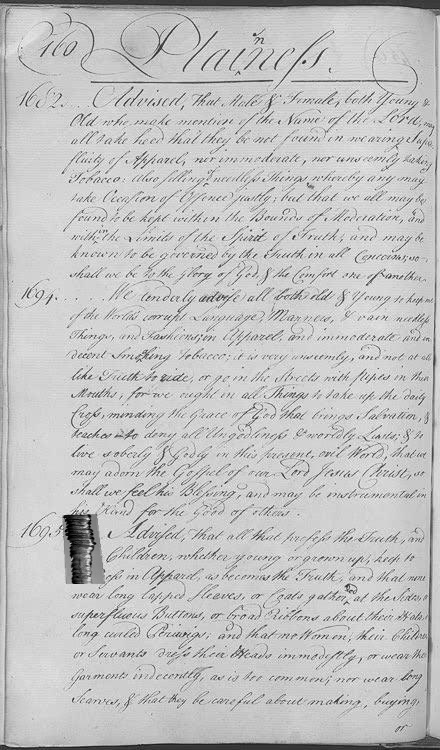 160 Plainness.
1682... Advised, That Male & Female, both Young &
Old who make mention of the Name of the Lord, may
all take heed that they be not found in wearing Supe
fluity of Apparel, nor immoderate, nor unseemly taking
Tobacco: Also selling needless Things whereby any may
take Occasion of Offence justly; but that we all may be
found to be kept within the Bounds of Moderation, and
within the Limits of the Spirit of Truth; and may be
known to be governed by the Truth in all Concerns, so
shall we be to the Glory of God, & the Comfort one of another
1694..... We tenderly advise all both old & Young to keep
of the World's corrupt Language, Manners, & vain needless
Things, and Fashions, in Apparel; and immoderate and in
decent Smoking Tobacco; it is very unseemly, and not at all
like Truth to ride, or go in the Streets with pipes in their
Mouths; for we ought in all Things to take up the daily
Cross, minding the Grace of God that brings Salvation, &
teaches to deny all Ungodliness & worldly Lusts; & to
live soberly & Godly in this present, evil World, that we
may adorn the Gospel of our Lord Jesus Christ, so
shall we feel his Blessing, and may be instrumental in
his Hand for the Good of others.
1695 Advised, That all that profess the Truth, and
Children, whether young or grown up, keep to
ss in Apparel, as becomes the Truth, and that none
wear long lapped Sleeves, or Coats gathered at the Sides, or
superfluous Buttons, or broad Ribbons about their Hats, or
long curled Periwigs; and that no Women, their Children
or Servants dress their Heads immodestly, or wear their
Garments indecently, as is too common; nor wear long
Scarves, & that they be careful about making, buying,
or